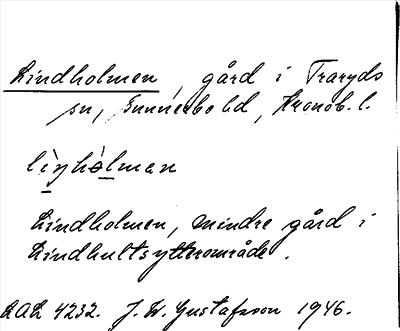 Lindholmen, gård i Traryds
sn, Sunnerbo hd, Kronob. l.
lìŋhòlman
Lindholmen, mindre gård i
Lindhultsytterområde.
LAL 4232. J. W. Gustafsson 1946.